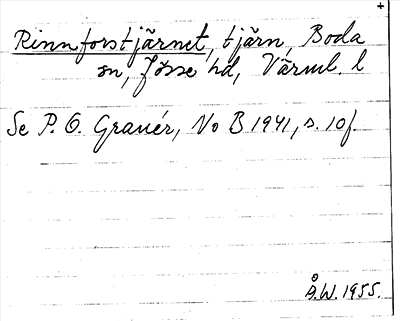 +
Rinnforstjärnet, tjärn, Boda
sn, Jösse hd, Värml. l
Se P. G. Granér, No B 1941, s. 10f.
Å.W. 1955.